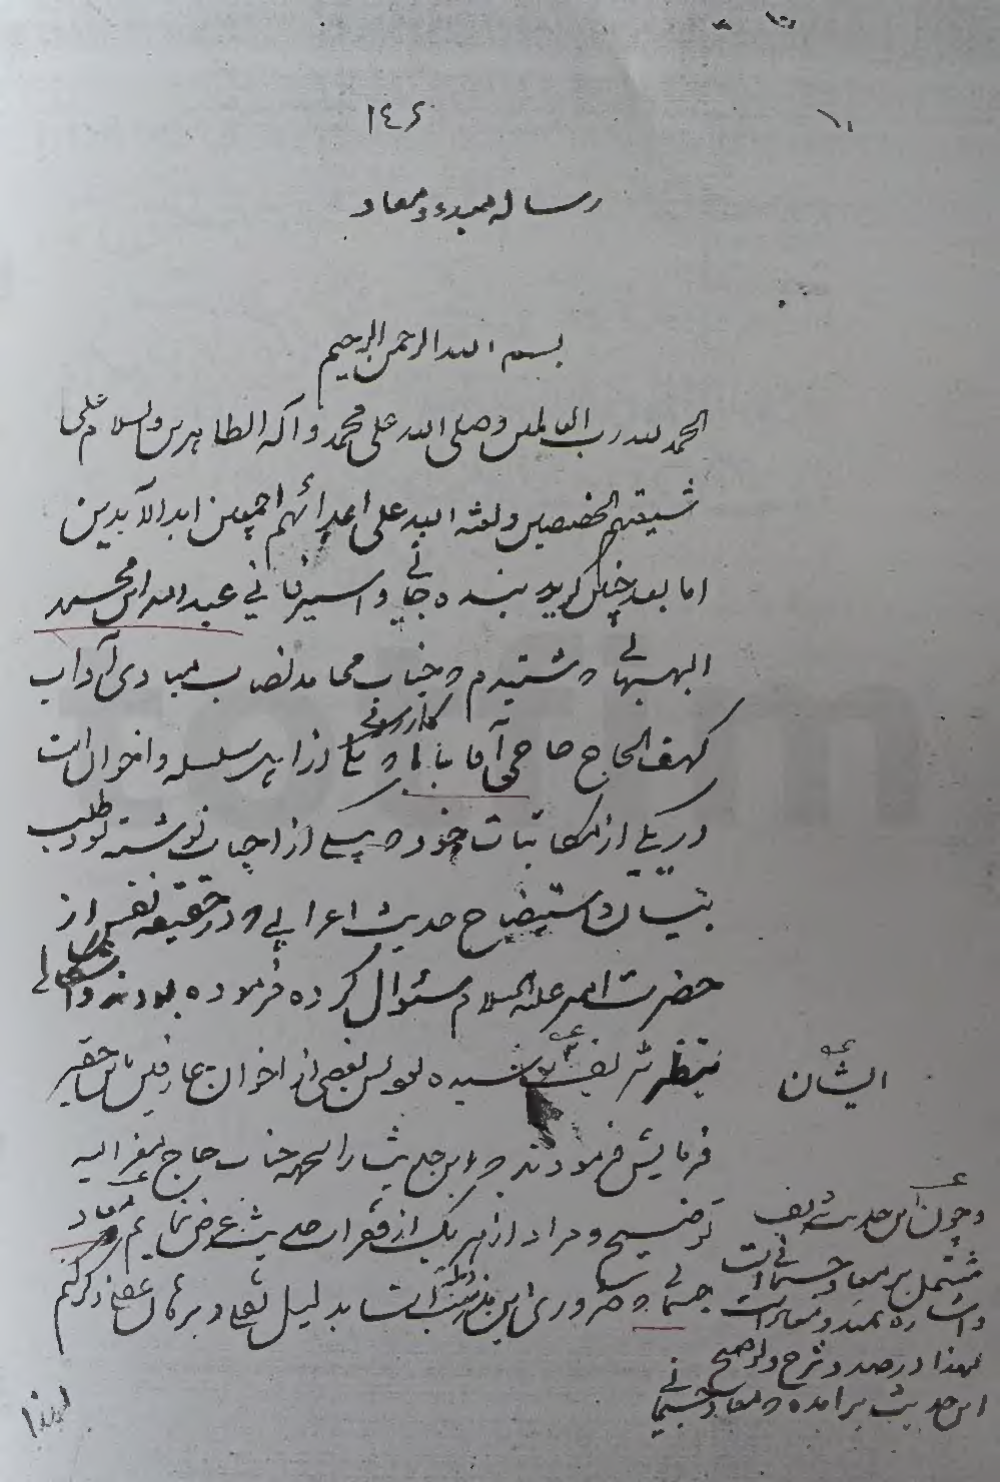 ١٤٤
رساله مبدء و معاد
بسم الله الرحمن الرحیم
الحمد لله رب العالمین وصلی الله علی محمد وآله الطاهرین والسلام علی
شیعتهم المخصصین ولعنه الله علی اعدائهم اجمعین ابد الآبدین
اما بعد چنین گوید بنده جانی و اسیر فانی عبدالله ابن محمد
البهبهانی که شنیدم که جناب محامد نصاب مبادی آداب
کهف الحاج حاجی آقا بابا کازرونی که یکی از این سلسله و اخوان است
در یکی از مکاتبات خود که بیکی از احباب نوشته بود طلب
بیان و استیضاح حدیث اعرابی که در حقیقه نفس از
حضرت امیر علیه السلام سئوال کرده فرموده بودند
بنظر شریف ایشان رسیده بعضی از اخوان حقیر
فرمایش فرمودند که این حدیث را بجهه جناب حاج
توضیح و مراد از هر یک از فقرات حدیث عرض نمایم و معاد
جسمانی که ضروری این مذهب است بدلیل و برهان ذکر کنم
ایشان
و چون این حدیث شریف
مشتمل بر معاد جسمانی است
لهذا در صدد شرح و توضیح
این حدیث برآمده و معاد جسمانی
لهذا